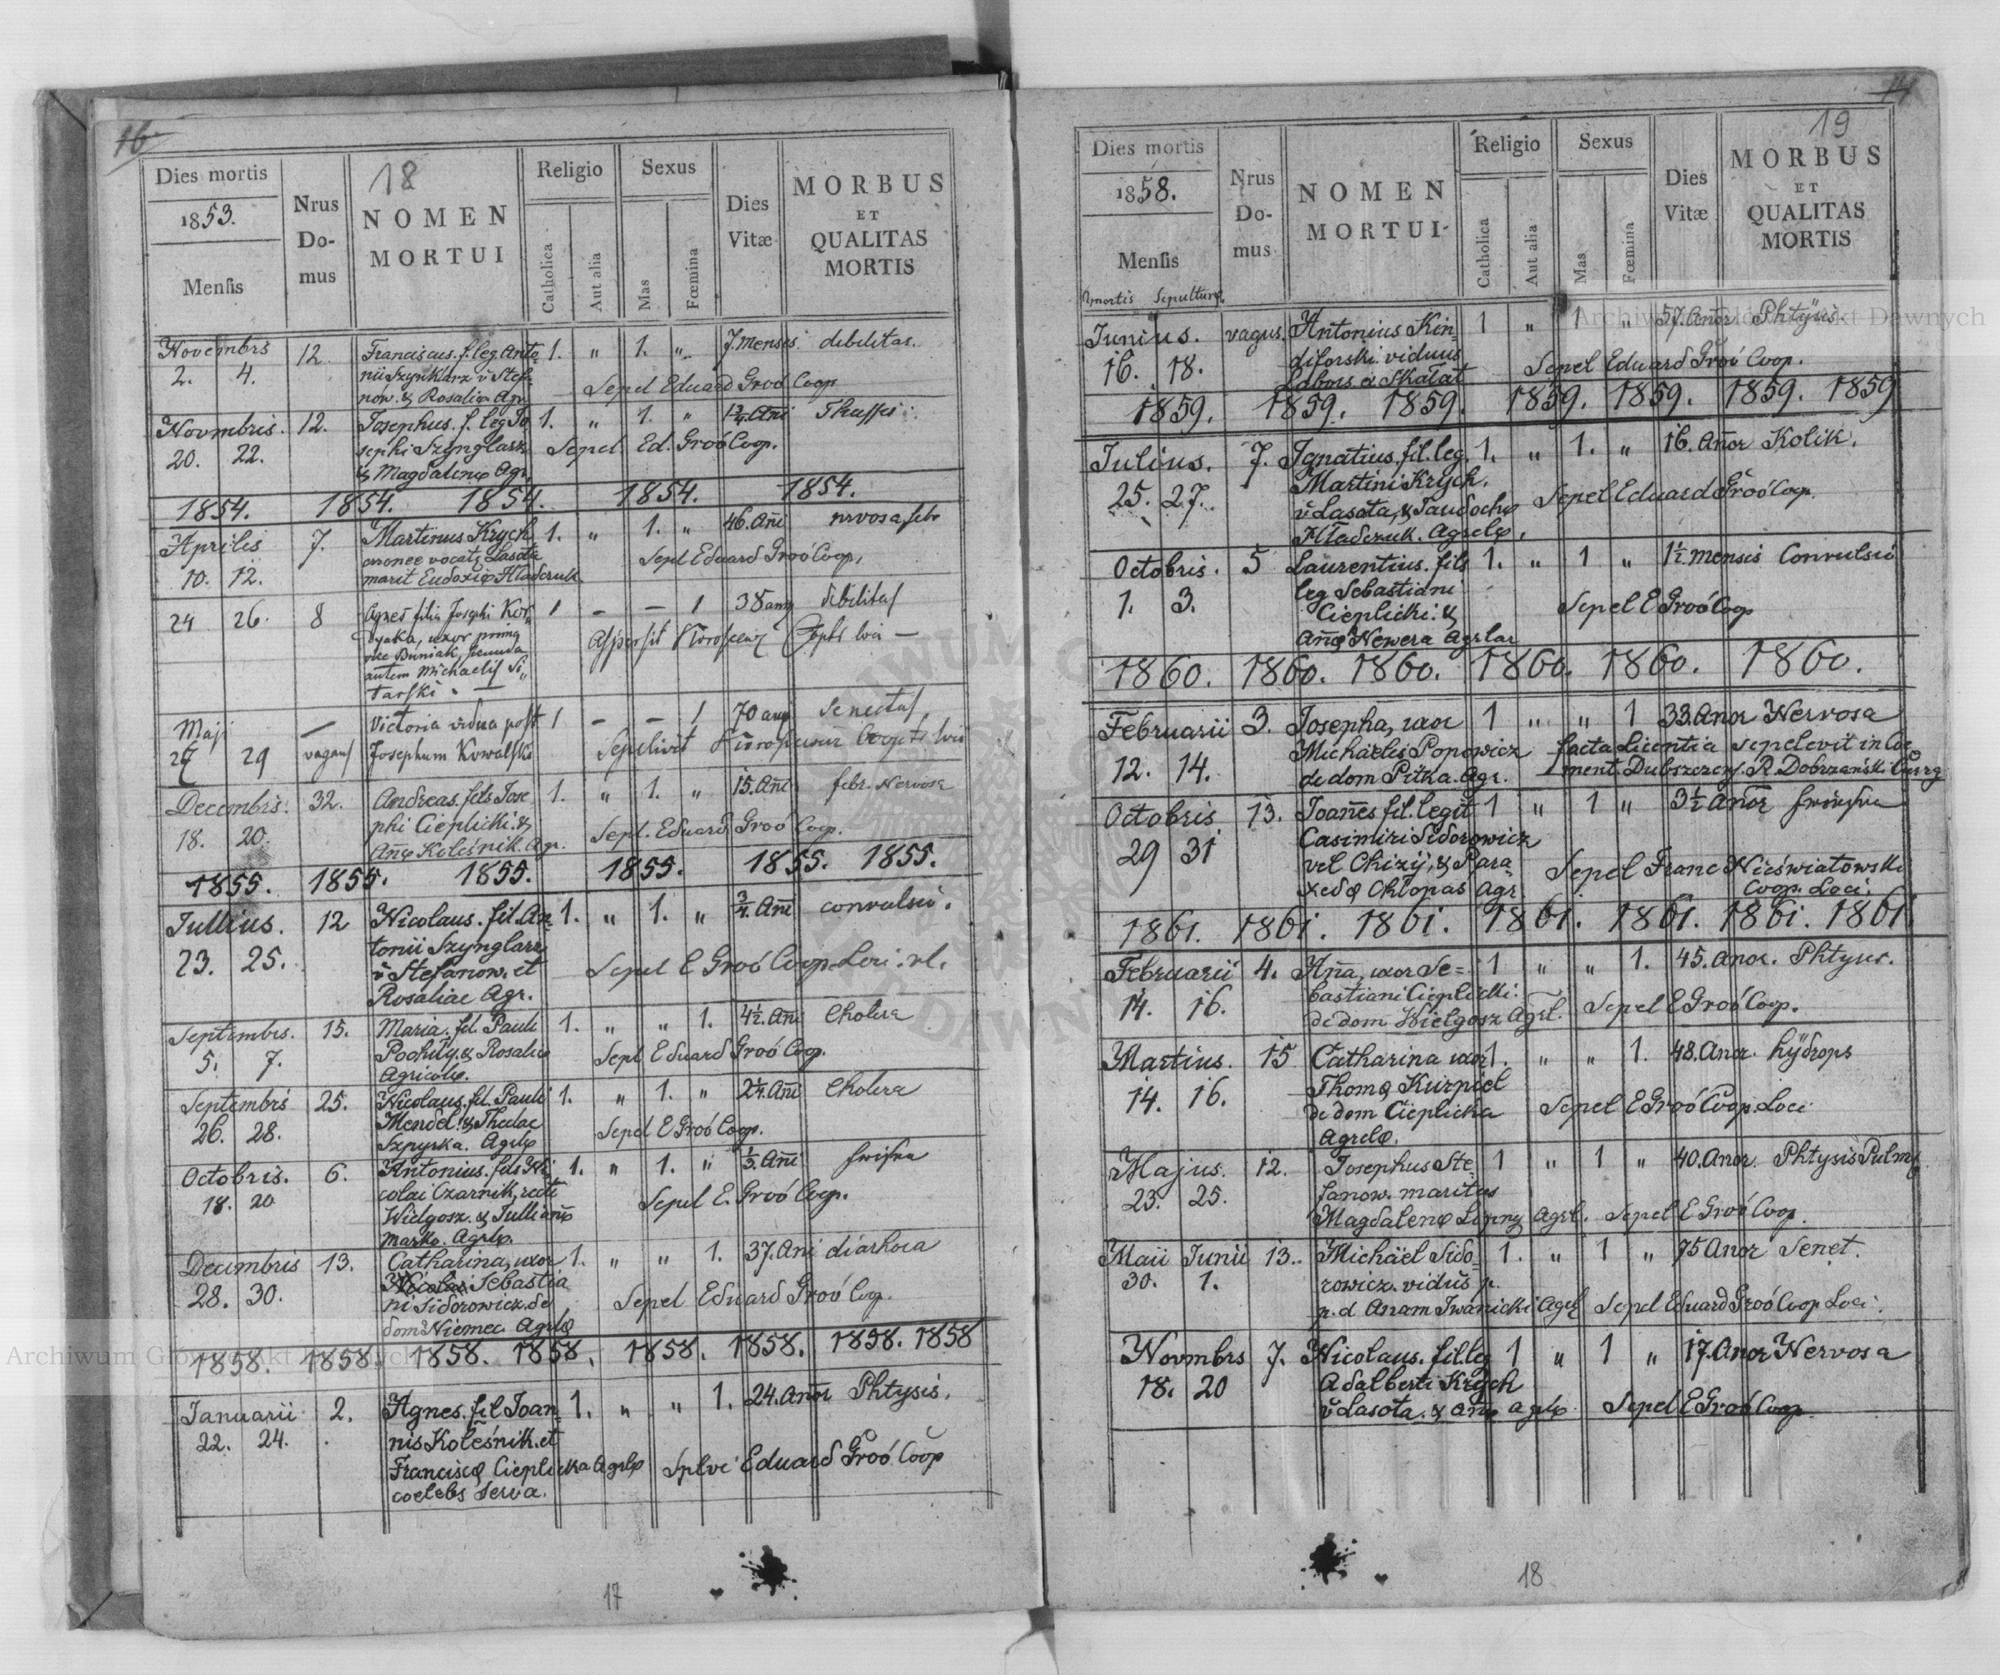 16
18
Dies mortis
1853.
Mensis
Nrus Do- mus
NOMEN MORTUI
Religio
Catholica
Aut alia
Sexus
Mas
Fœmina
Dies Vitæ
MORBUS ET QUALITAS MORTIS
Novembris 12. Franciscus. f. leg. Anto- 1. " 1. " 7. mensis. debilitas.
2. 4. nii Szynklarz v Stefa-
now. & Rosaliæ Agr. Sepel Eduard Groó Coop
Novmbris. 12. Josephus. f. leg Jo 1. " 1. " 1¾ Añi Thussis.
20. 22. sephi Szynglarz Sepel. Ed. Groó Coop.
& Magdalenæ Agr.
1854. 1854. 1854. 1854. 1854.
Aprilis 7. Martinus Krych 1. " 1. " 46. Añi nrvosa febr
10. 12. vocat Lasota Sepel Eduard Groó Coop.
marit Eudoxiæ Hładczuk
24 26. 8 Agnes filia Josephi Kor- 1 — — 1 38 debilitas
uxor primo
Buniak, secundo loci —
autem Michaelis Si"
tarski. —
Maji — Victoria vidua post 1 — — 1 70 senectus
27 29 vagans Josephum Kowalski Sepelivit loci
Decembris. 32. Andreas. fils Jose 1. " 1. " 15. Añi febr. Nervosa
18. 20. phi Cieplicki. & Sepl. Eduard Groó Coop.
Añæ Koleśnik Agr.
1855. 1855. 1855. 1855. 1855. 1855.
Jullius. 12 Nicolaus. fil. An- 1. " 1. " ¾. Añi convulsió.
23. 25. tonii Szynglarz
v Stefanow. et Sepel E Groó Coop. Loci.
Rosaliae Agr.
Septembrs. 15. Maria. fil. Pauli 1. " " 1. 4½. Añi Cholera
5. 7. & Rosaliæ Sepl Eduard Groó Coop.
Agricolæ.
Septembris 25. Nicolaus. fil. Pauli 1. " 1. " 2¼. Añi Cholera
26. 28. Mendel. & Theclae Sepel E Groó Coop.
Szpyrka. Agrlæ
Octobris. 6. Antonius. fils Ni 1. " 1. " Añi
18. 20 colai Czarnik, recti Sepel E. Groó Coop.
Widgosz. & Jullianæ
Marko. Agrlæ.
Decimbris 13. Catharina, uxor 1. " " 1. 37. Ani diarhoea
28. 30. Sebastia
ni Sidorowicz. de Sepel Eduard Groó Coop.
dom Niemec. Agrlæ
1858. 1858 1858. 1858. 1858. 1858. 1858. 1858
Januarii 2. Agnes. fil Joan- 1. " " 1. 24. Añor Phtysis.
22. 24. nis Koleśnik. et
Franciscæ Cieplicka Agrlæ Splvi Eduard Groó Coop
coelebs Serva.
17
14
19
Dies mortis
1858.
Mensis
mortis Sepulturæ
Nrus Do- mus
NOMEN MORTUI
Religio
Catholica
Aut alia
Sexus
Mas
Fœmina
Dies Vitæ
MORBUS ET QUALITAS MORTIS
Junius. vagus. Antonius Kin 1 " 1 " 57. Añor Phtysis
16. 18. viduus Sepel Eduard Groó Coop.
Skałat
1859. 1859. 1859. 1859. 1859. 1859. 1859
Julius. 7. Ignatius. fil. leg. 1. " 1. " 16. Añor Kolik.
25. 27. Martini Krych.
v Lasota, & Eaudochæ Sepel Eduard Groó Coop.
Hładczuk. Agrclæ.
Octobris. 5 Laurentius. fils 1. " 1 " 1½ mensis Convulsió
1. 3. leg Sebastiani
Cieplicki. & Sepel E Groó Coop
Añæ Newera Agrlar
1860. 1860. 1860. 1860. 1860. 1860.
Februarii 3. Josepha, uxor 1 " " 1 33. Anor Nervosa
12. 14. Michaelis Popowicz facta Licentia sepelevit in Coe
de dom Pitka. Agr. ment. Dubszczens. R. Dobrzański.
Octobris 13. Joañes fil. legit 1 " 1 " 3½ Añor
29 31 Casimiri Sidorowicz
vel Chizij, & Para Sepel Franc Nieświatowski
xedæ Chłopas Agr. Coop. Loci.
1861. 1861. 1861. 1861. 1861. 1861. 1861.
Februarii 4. Aña, uxor Se= 1 " " 1. 45. Anor. Phtysis.
14. 16. bastiani Cieplicki.
de dom Wielgosz Agrl. Sepel E Groó Coop.
Martius. 15 Catharina uxor 1. " " 1. 48. Anor. hÿdrops
14. 16. Thomæ Kurpiel
de dom Cieplicka Sepel E Groó Coop. Loci
Agrclæ.
Majus. 12. Josephus Ste- 1 " 1 " 40. Anor. Phtysis Pulm
23. 25. fanow. maritus
Magdalenæ Agrl. Sepel E Groó Coop.
Maii Junii 13.. Michaël Sido- 1. " 1 " 75 Anor Senet.
30. 1. rowicz. viduus p.
p. d. Anam Iwanicki Agrl Sepel Eduard Groó Coop Loci.
Novmbrs 7. Nicolaus. fil. leg 1 " 1 " 17. Anor Nervosa
18. 20 Adalberti Krych
v Lasota. & Anæ agrlæ. Sepel E Groó Coop
18
Archiwum Główne Akt Dawnych